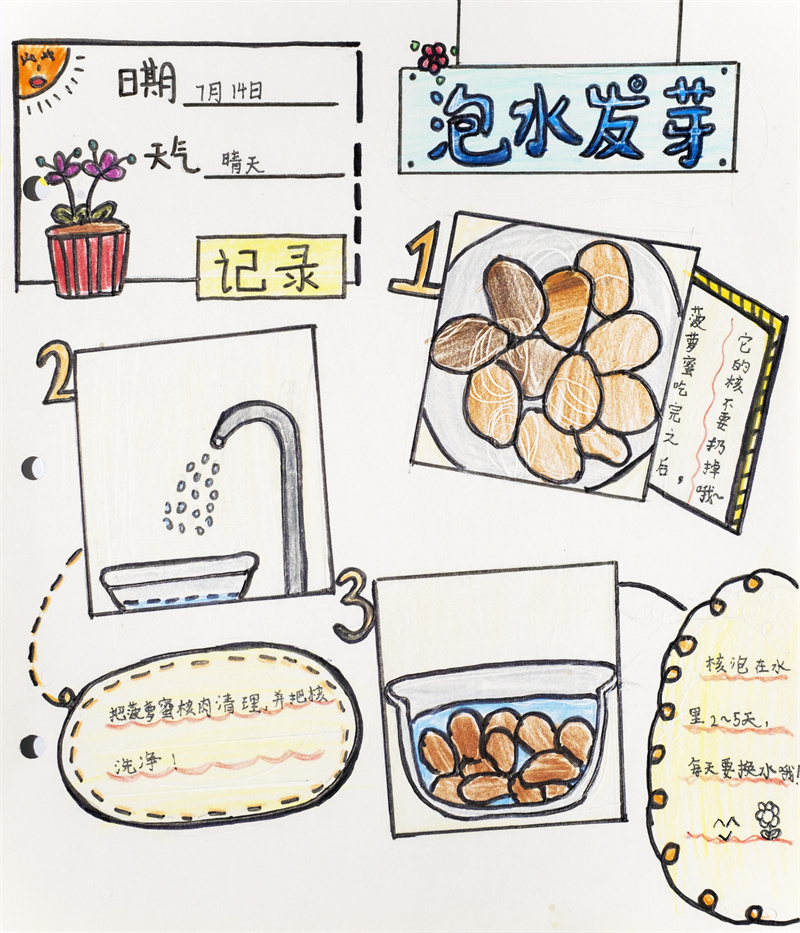 日期 7月14日
天气 晴天
记录
泡水发芽
1
菠萝蜜吃完之后，
它的核不要扔掉哦～
2
把菠萝蜜核肉清理，并把核
洗净！
3
核泡在水
里2～5天，
每天要换水哦！